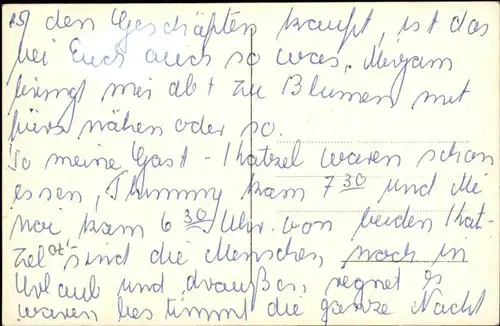 15) den Geschäften kauft, ist das
bei Euch auch so was. Mirjam
bringt mir ab + zu Blumen mit
fürs nähen oder so.
So meine Gast - Katzel waren schon
essen, Thummy kam 7 30 und Mi
noi kam 6 30 Uhr. von beiden Kat-
zel sind die Menschen, noch in
Urlaub und draußen, regnet es
waren bestimmt die ganze Nacht